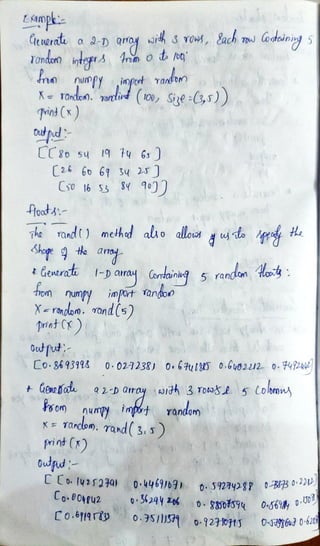 Example:-
Generate a 2-D array with 3 rows, Each row Containing 5
random integers from 0 to 100:
from numpy import random
X = random. randint (100, Size=(3,5))
print (x)
output:-
[[80 54 19 74 65]
[26 60 69 34 25]
[50 16 55 84 90]]
floats:-
The rand() method also allows us to specify the
Shape of the array.
* Generate 1-D array Containing 5 random floats:
from numpy import random
X = random. rand(5)
print (x)
output:-
[0.8693998 0.0272381
* Generate a 2-D array with 3 rows & 5 Columns
from numpy import random
x = random. rand(3,5)
print (x)
output :-
[[0.14252791 0.44691071 0.59274288
0.36294
0.75111579